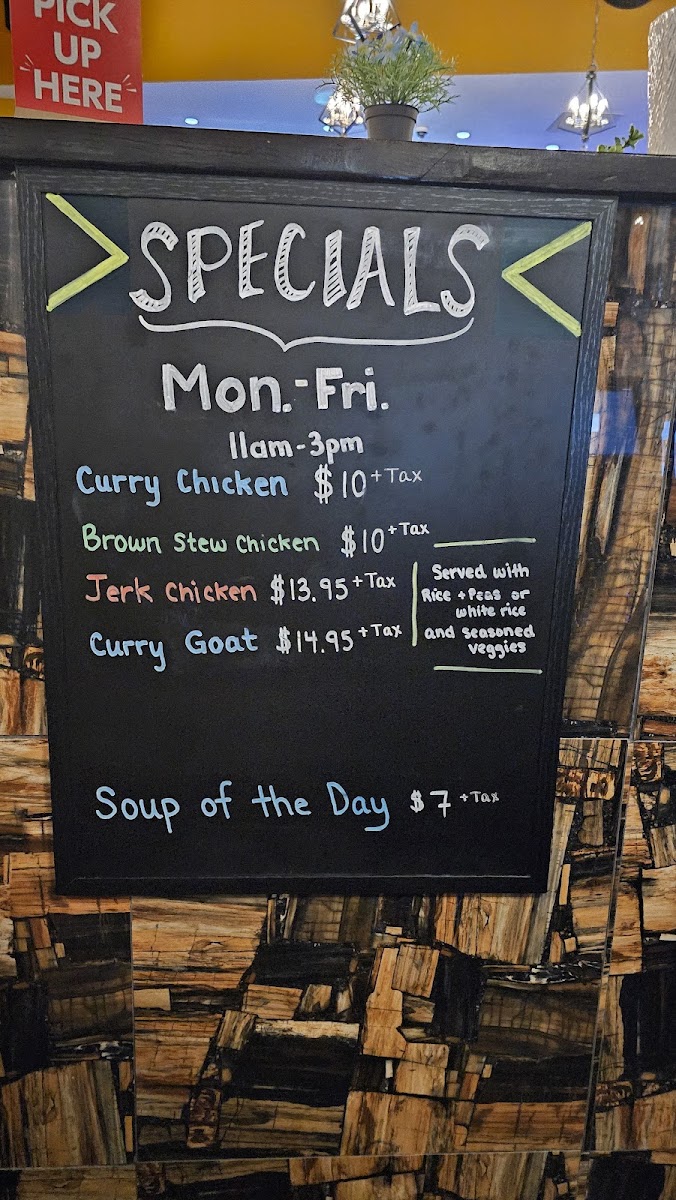 PICK
UP
HERE
SPECIALS
Mon.-Fri.
11am-3pm
Curry Chicken $10+Tax
Brown Stew Chicken $10+Tax
Jerk Chicken $13.95+Tax
Curry Goat $14.95+Tax
Served with
Rice + Peas or
white rice
and seasoned
veggies
Soup of the Day $7+Tax